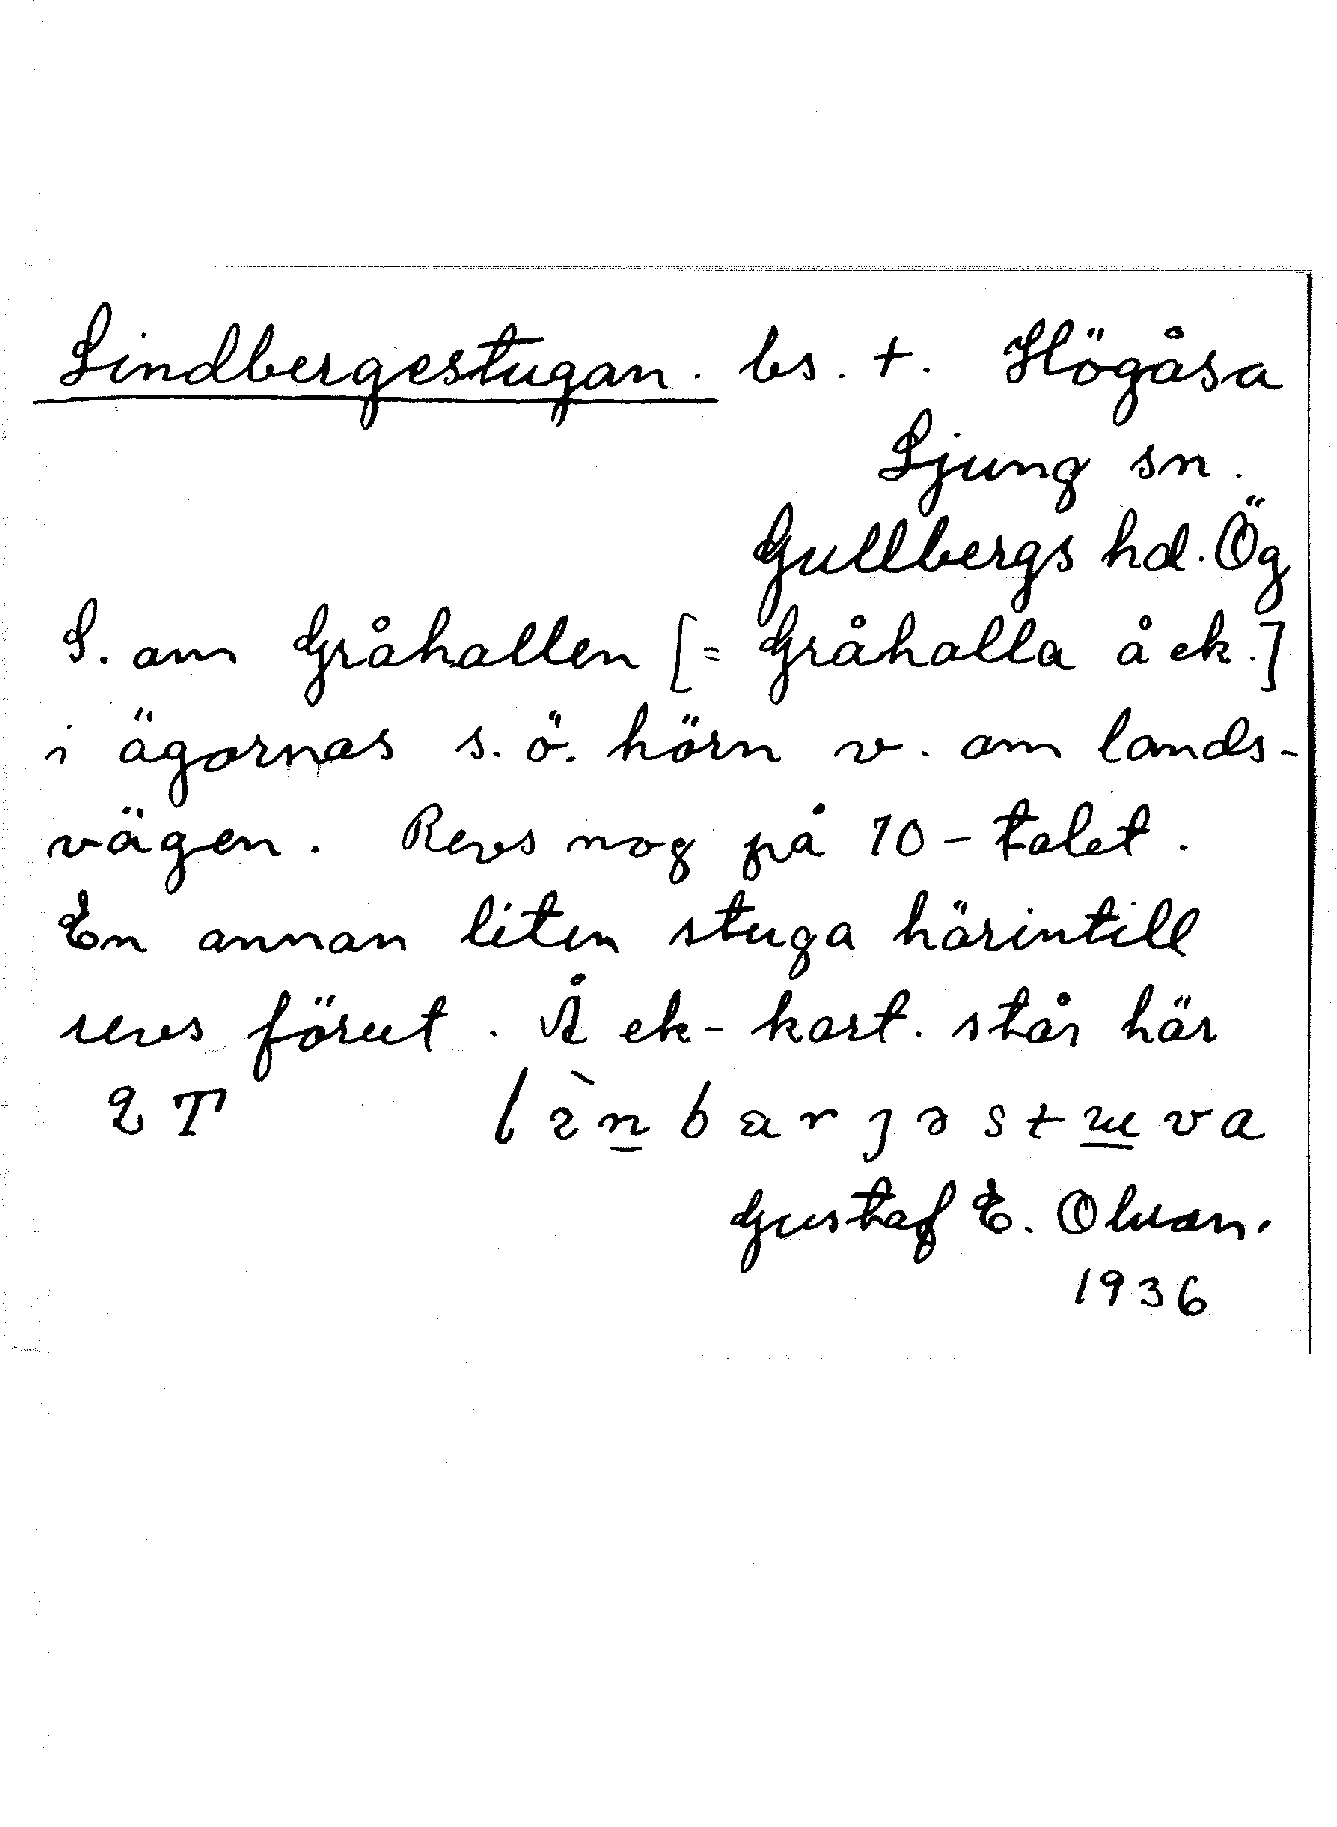 Lindbergestugan. bs. +. Högåsa
Ljung sn.
Gullbergs hd. Ög
S. om Gråhallen [= Gråhalla å ek.]
i ägornas s.ö. hörn v. om lands-
vägen. Revs nog på 10-talet.
En annan liten stuga härintill
revs förut. Å ek-kart. står här
2 T lɪ̀n̲bærjəstu̲va
Gustaf E. Olsson.
1936